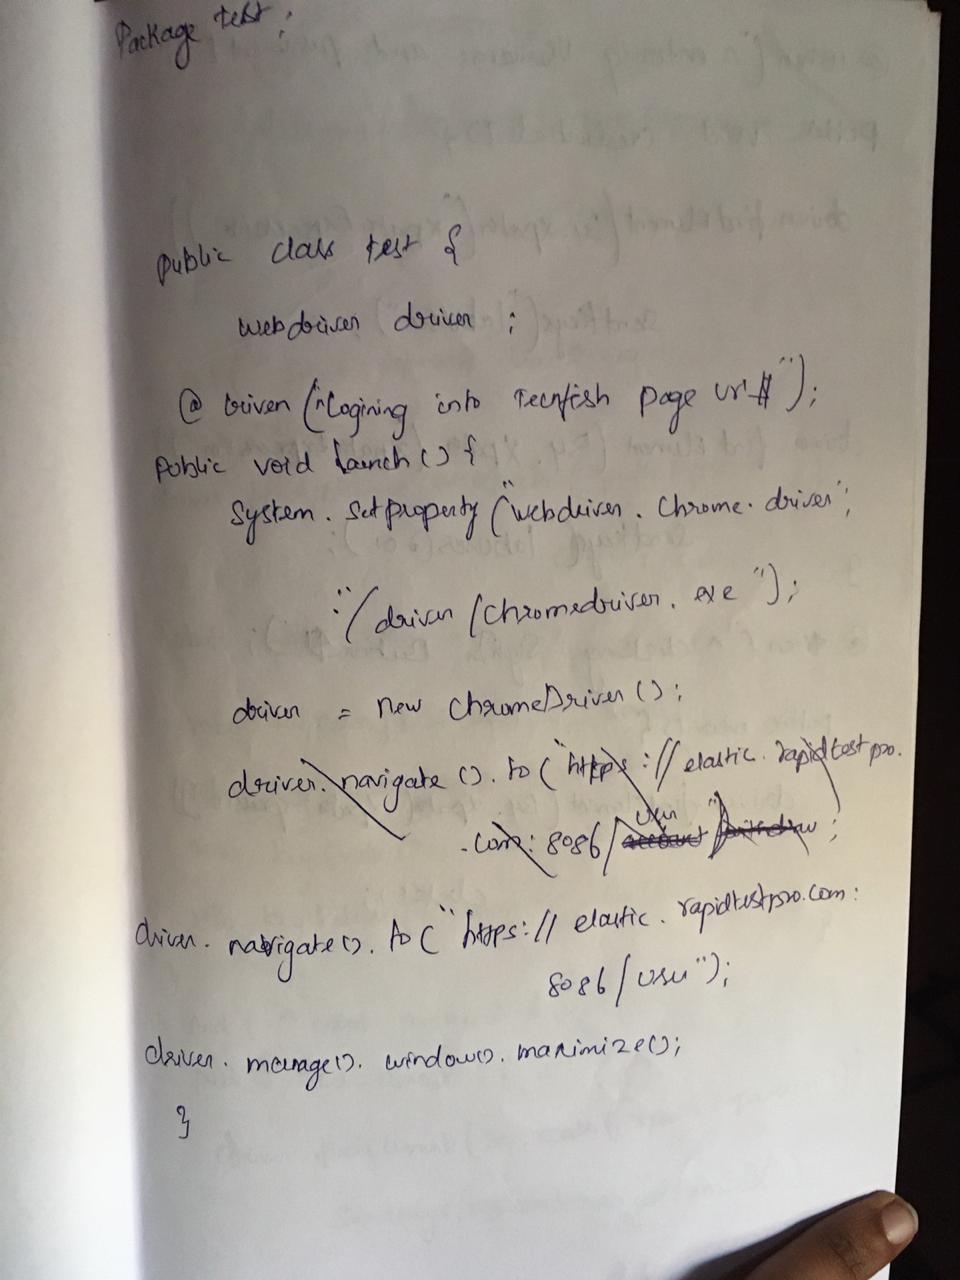 Package test;
public class test {
webdriver driver ;
@ Given ("Logining into Tecnfish page url");
Public void launch () {
System . setproperty ("webdriver . Chrome . driver";
"/ driver / Chromedriver . exe ");
driver = new ChromeDriver () ;
driver. navigate (). to ( "https :// elastic . rapidtest pro.
. com : 8086 / User " ;
driver . navigate(). to ( "https:// elastic . rapidtestpro.com :
8086 / user");
driver . manage(). window(). maximize();
}